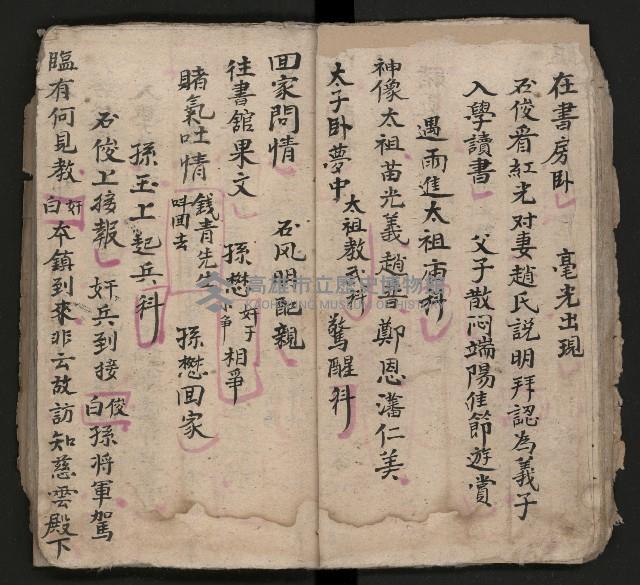 在書房卧　毫光出現
石俊看紅光对妻趙氏説明拜認為義子
入學讀書　父子散闷端陽佳節遊賞
遇雨進太祖庙科
神像太祖苗光義趙　鄭恩潘仁美
太子卧夢中　太祖教武科　驚醒科
回家問情　石凤問配親
往書館果文　孫懋　奸子　小爭　相爭
賭氣吐情　錢青先生　呌回去　孫懋回家
孫王上起兵科
石俊上接報　奸兵到接　俊白　孫将軍駕
臨有何見教　奸白　夲鎮到來非云故訪知慈雲殿下
高雄市立歷史博物館
KAOHSIUNG MUSEUM OF HISTORY